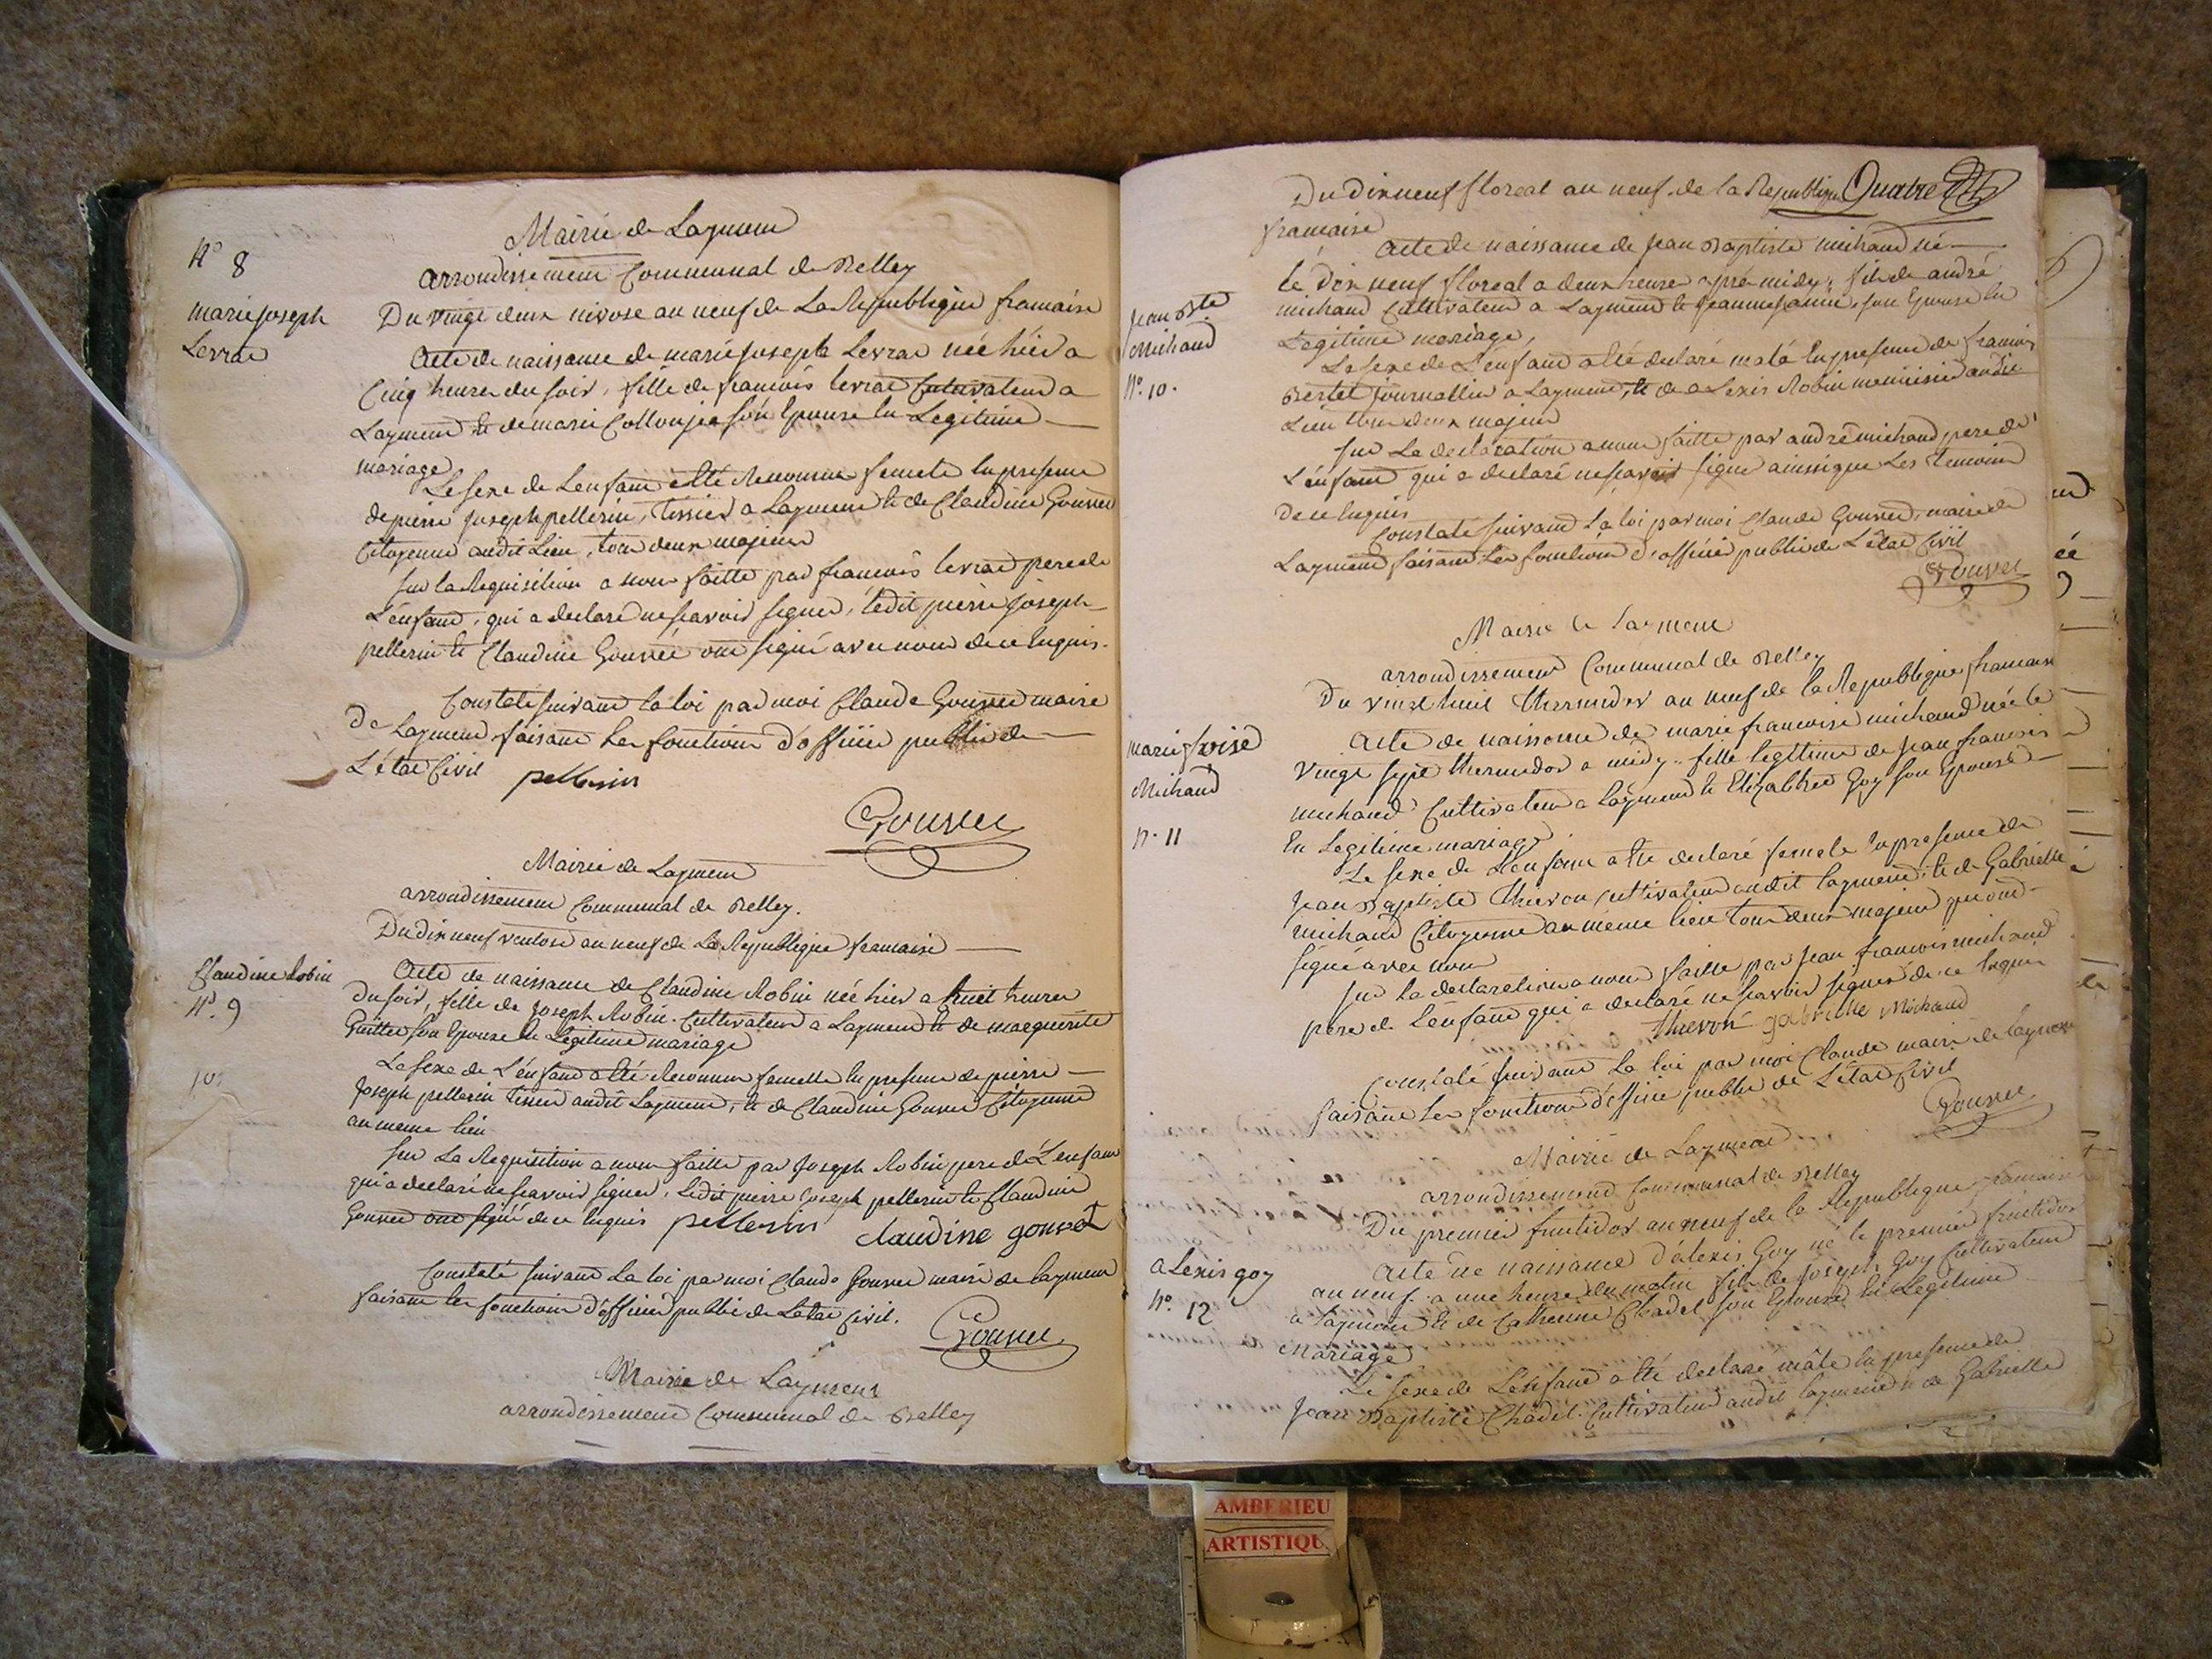 Mairie de Laymen
arrondissement Communal de Belley
N° 8
marie joseph
Levrat
Du vingt deux nivose an neuf de La Republique francaise
Acte de naissance de marie joseph Levrat née hier a
Cinq heures du soir, fille de francois levrat Cultivateur a
Laymen et de marie son Epouse En Legitime
mariage
Le sexe de Lenfant a Eté Reconnu femele En presence
de pierre joseph pellerin, tissier a Laymen et de Claudine Gouvet
Citoyenne audit Lieu, tous deux majeurs
Sur la Requisition a nous faitte par francois levrat pere de
L'enfant, qui a declaré ne scavoir signer, ledit pierre joseph
pellerin et Claudine Gouvet ont signé avec nous de ce Enquis.
Constaté suivant la loi par moi Claude Gouvet maire
de Laymen faisant les fonctions d'officier public de
L'état Civil
pellerin
Gouvet
Mairie de Laymen
arrondissement Communal de Belley.
Du dix neuf ventose an neuf de La Republique francaise
Claudine Robin
N°. 9
Acte de naissance de Claudine Robin née hier a huit heures
du soir, fille de joseph Robin Cultivateur a Laymen et de marguerite
Guitte son Epouse En Legitime mariage
Le sexe de L'enfant a Eté Reconnu femelle En presence de pierre
joseph pellerin tissier audit Laymen, et de Claudine Gouvet Citoyenne
au meme lieu
10.
Sur La Requisition a nous faitte par joseph Robin pere de L'enfant
qui a declaré ne scavoir signer, Ledit pierre joseph pellerin et Claudine
Gouvet ont signé de ce Enquis pellerin
claudine gouvet
Constaté suivant La loi par moi Claude Gouvet maire de laymen
faisant les fonctions d'officier public de Letat Civil.
Gouvet
Mairie de Laymen
arrondissement Communal de Belley
Du dix neuf floreal an neuf de la Republique Quatre
francaise
Acte de naissance de jean Baptiste michaud né
le dix neuf floreal a deux heures apré midy, fils de andré
michaud Cultivateur a Laymen et jeanne son Epouse En
Legitime mariage,
jean Bte
Michaud
N°. 10.
Le sexe de L'enfant a Eté declaré male En presence de francois
Bertet journallier a Laymen, et de aLexis Robin menuisier audit
Lieu tous deux majeurs
Sur La declaration a nous faitte par andré michaud pere de
L'enfant qui a declaré ne scavoir signer ainsi que Les temoins
De ce Enquis
Constaté suivant la loi par moi Claude Gouvet, maire de
Laymen faisant Les fonctions d'officier public de L'état Civil
Gouvet
Mairie de Laymen
arrondissement Communal de Belley
Du vingt huit thermidor an neuf de la Republique francaise
marie froise
Michaud
N° 11
Acte de naissance de marie francoise michaud née le
vingt sept thermidor a midy fille legitime de jean francois
michaud Cultivateur a Laymen et Elizabhet Goy son Epouse
En Legitime mariage
Le sexe de L'enfant a Eté declaré femele En presence de
jean Baptiste thevon cultivateur audit laymen et de Gabrielle
michaud Citoyenne au même lieu tous deux majeurs qui ont
signé avec nous
Sur la declaration a nous faitte par jean francois michaud
pere de L'enfant qui a declaré ne scavoir signer de ce Enquis
thevon gabrielle Michaud
Constaté suivant La loi par moi Claude maire de laymen
faisant Les fonctions d'officier public de L'état Civil
Gouvet
Mairie de Laymen
arrondissement Communal de Belley
Du premier fructidor an neuf de la Republique francaise
aLexis goy
N°. 12
Acte de naissance d'alexis Goy né le premier fructidor
an neuf a une heure du matin fils de joseph Goy Cultivateur
a Laymen et de Catherine Chadel son Epouse En Legitime
Mariage
Le sexe de Lenfant a Eté declaré mâle En presence de
jean Baptiste Chadel Cultivateur audit laymen et de Gabrielle
AMBERIEU
ARTISTIQU